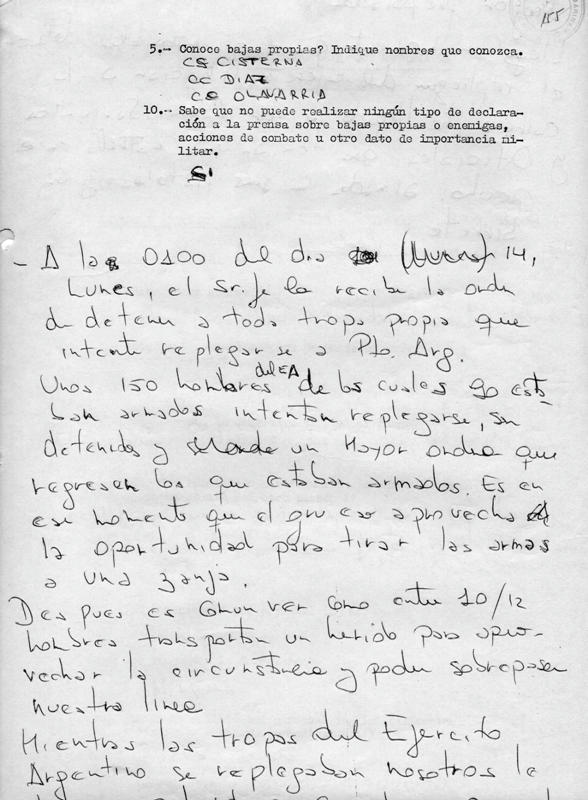 155
5.-- Conoce bajas propias? Indique nombres que conozca.
CS CISTERNA
CC DIAZ
CS OLAVARRIA
10.-- Sabe que no puede realizar ningún tipo de declara-
ción a la prensa sobre bajas propias o enemigas,
acciones de combate u otro dato de importancia mi-
litar.
SI
- A las 0100 del dia (Lunes) 14,
Lunes, el Sr. Je la recibe la orden
de detener a toda tropa propia que
intente replegarse a Pto. Arg.
del EA
Unos 150 hombres de los cuales 90 esta-
ban armados intentan replegarse, son
detenidos y un Mayor ordena que
regresen los que estaban armados. Es en
ese momento que el grueso aprovecha
la oportunidad para tirar las armas
a una zanja.
Despues es comun ver como entre 10/12
hombres transportan un herido para apro-
vechar la circunstancia y poder sobrepasar
nuestra linea
Mientras las tropas del Ejercito
Argentino se replegaban nosotros la